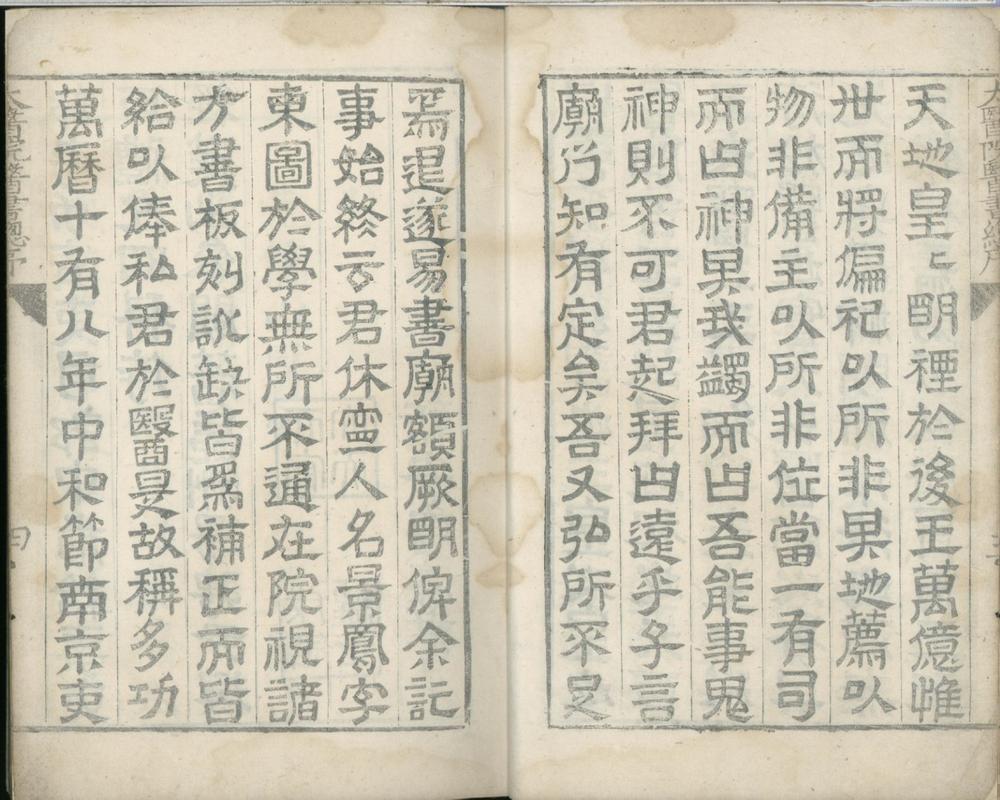 太醫院醫書總序
天地皇〻朙禋於後王萬億惟
世而將偏祀以所非畀地薦以
物非備主以所非位當一有司
而曰神畀我蠲而曰吾能事鬼
神則不可君起拜曰遠乎子言
廟乃知有定矣吾又弘所不是
焉退遂易書廟額厥朙俾余記
事始終云君休寧人名景鳳字
東圖於學無所不通在院視諸
方書板刻訛缺皆爲補正而皆
給以俸私君於醫是故稱多功
萬曆十有八年中和節南京吏
太醫院醫書總序
四